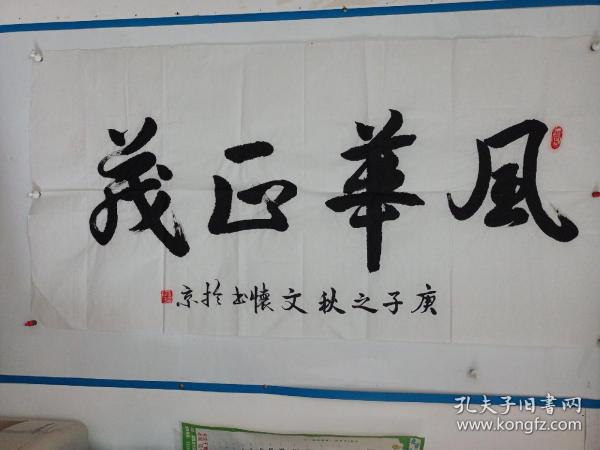 風華正茂
庚子之秋文懷书於京
孔夫子旧書网
www.kongfz.com